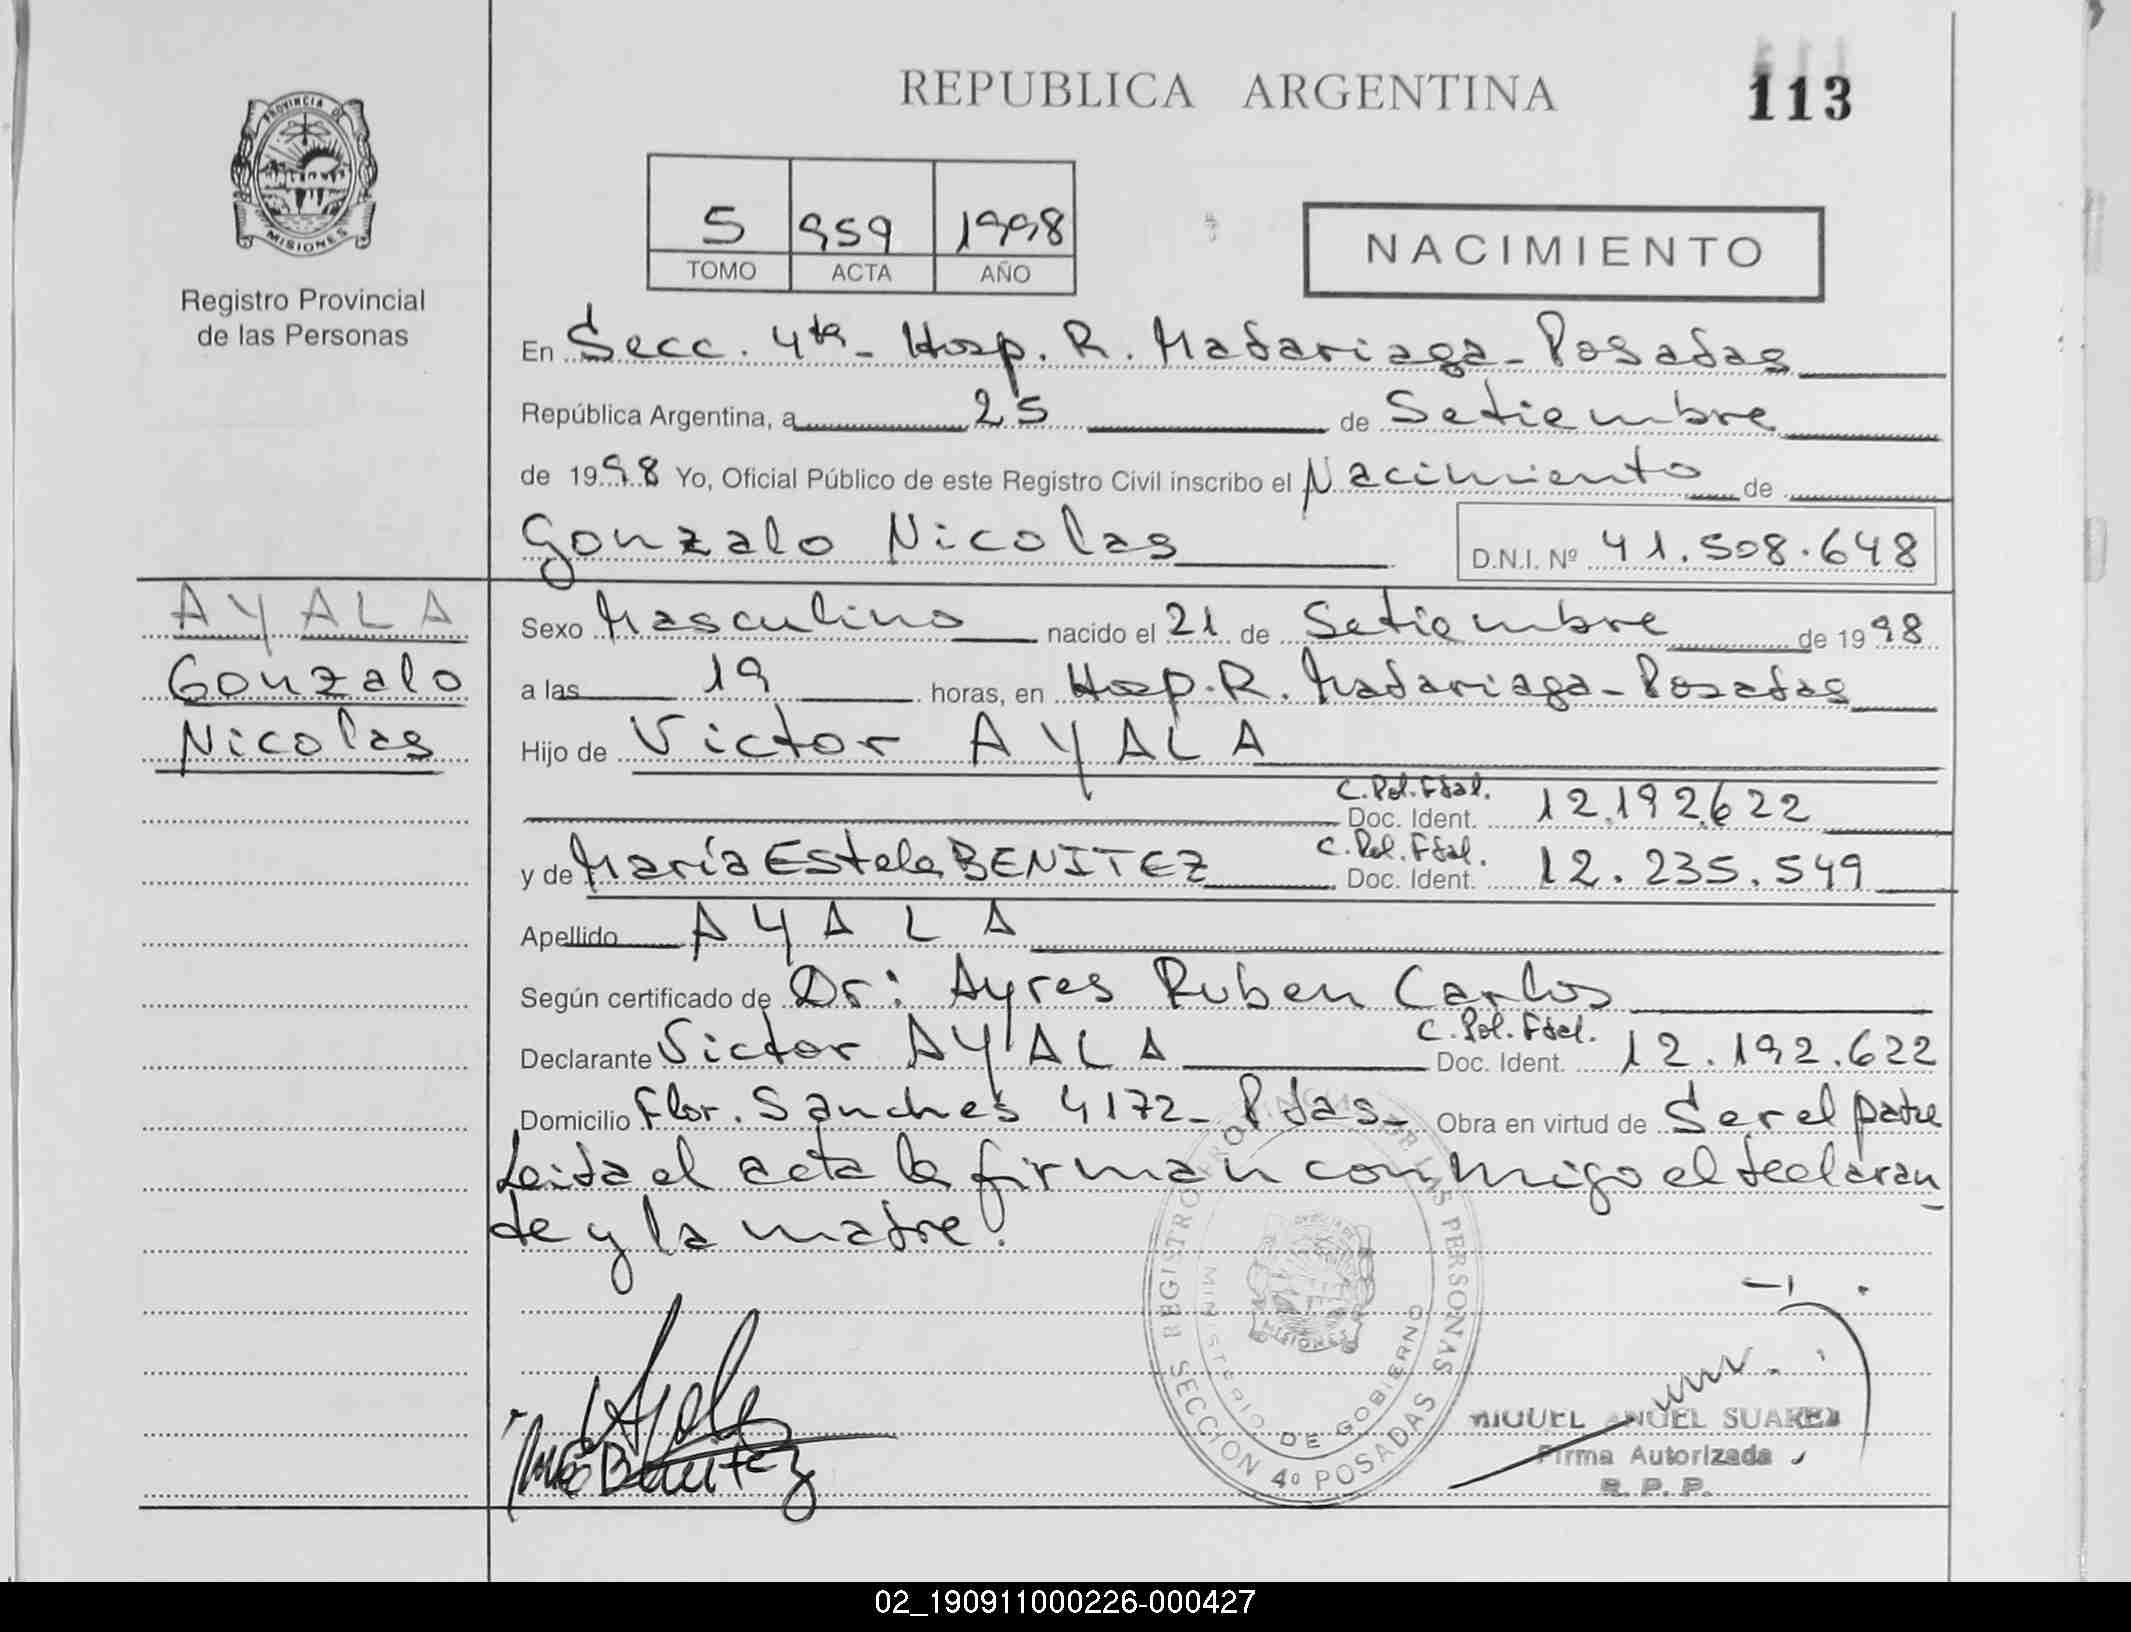 REPUBLICA ARGENTINA
113
PROVINCIA DE
MISIONES
Registro Provincial
de las Personas
5 959 1998
TOMO ACTA AÑO
NACIMIENTO
En Secc. 4ta - Hosp. R. Madariaga - Posadas
República Argentina, a 25 de Setiembre
de 1998 Yo, Oficial Público de este Registro Civil inscribo el Nacimiento de
Gonzalo Nicolas D.N.I. Nº 41.508.648
AYALA
Gonzalo
Nicolas
Sexo Masculino nacido el 21 de Setiembre de 1998
a las 19 horas, en Hosp. R. Madariaga - Posadas
Hijo de Victor AYALA
C. Pol. Fdal.
Doc. Ident. 12.192.622
C. Pol. Fdal.
y de María Estela BENITEZ Doc. Ident. 12.235.549
Apellido AYALA
Según certificado de Dr: Ayres Ruben Carlos
C. Pol. Fdal.
Declarante Victor AYALA Doc. Ident. 12.192.622
Domicilio Flor. Sanches 4172 - Pdas - Obra en virtud de Ser el padre
Leida el acta la firman conmigo el declaran
te y la madre.
REGISTRO PROVINCIAL DE LAS PERSONAS
MINISTERIO DE GOBIERNO
MISIONES
SECCION 4º POSADAS
Ayala
Benitez
MIGUEL ANGEL SUAREZ
Firma Autorizada
R. P. P.
02_190911000226-000427